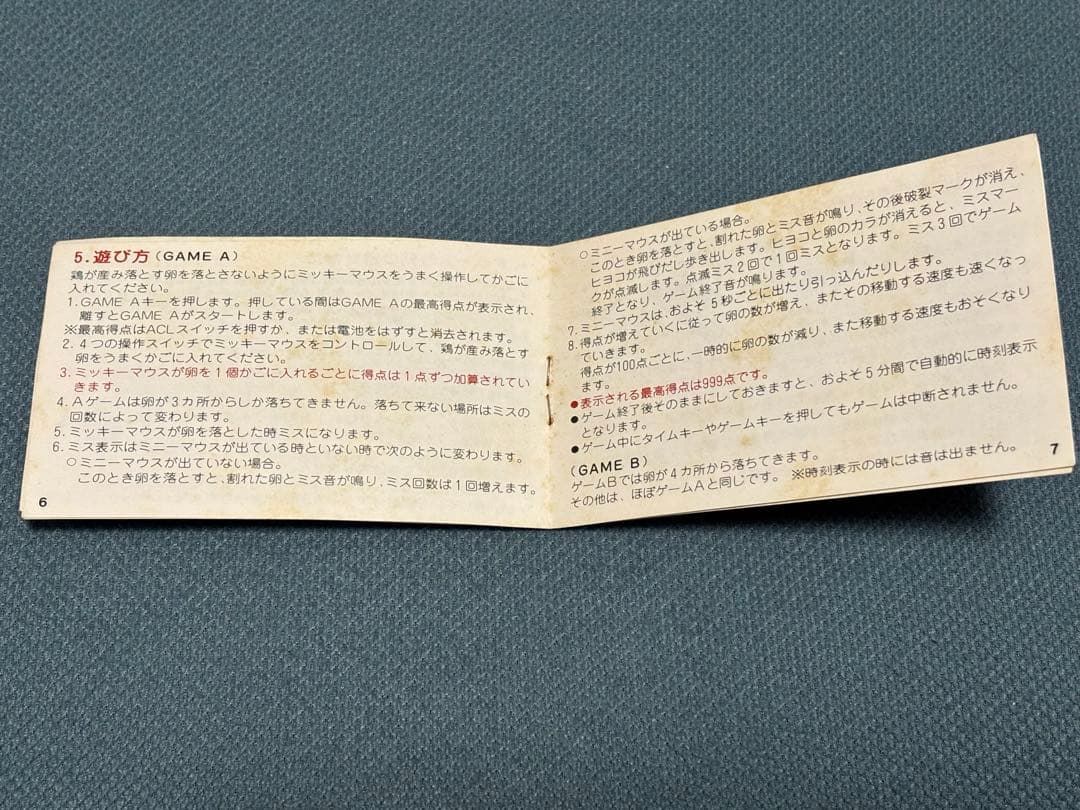 5.遊び方(GAME A)
鶏が産み落とす卵を落とさないようにミッキーマウスをうまく操作してかごに
入れてください。
1.GAME Aキーを押します。押している間はGAME Aの最高得点が表示され、
離すとGAME Aがスタートします。
※最高得点はACLスイッチを押すか、または電池をはずすと消去されます。
2.4つの操作スイッチでミッキーマウスをコントロールして、鶏が産み落とす
卵をうまくかごに入れてください。
3.ミッキーマウスが卵を1個かごに入れるごとに得点は1点ずつ加算されてい
きます。
4.Aゲームは卵が3カ所からしか落ちてきません。落ちて来ない場所はミスの
回数によって変わります。
5.ミッキーマウスが卵を落とした時ミスになります。
6.ミス表示はミニーマウスが出ている時といない時で次のように変わります。
○ミニーマウスが出ていない場合。
このとき卵を落とすと、割れた卵とミス音が鳴り、ミス回数は1回増えます。
6
○ミニーマウスが出ている場合。
このとき卵を落とすと、割れた卵とミス音が鳴り、その後破裂マークが消え、
ヒヨコが飛びだし歩き出します。ヒヨコと卵のカラが消えると、ミスマー
クが点滅します。点滅ミス2回で1回ミスとなります。ミス3回でゲーム
終了となり、ゲーム終了音が鳴ります。
7.ミニーマウスは、およそ5秒ごとに出たり引っ込んだりします。
8.得点が増えていくに従って卵の数が増え、またその移動する速度も速くなっ
ていきます。
得点が100点ごとに、一時的に卵の数が減り、また移動する速度もおそくなり
ます。
●表示される最高得点は999点です。
●ゲーム終了後そのままにしておきますと、およそ5分間で自動的に時刻表示
となります。
●ゲーム中にタイムキーやゲームキーを押してもゲームは中断されません。
(GAME B)
ゲームBでは卵が4カ所から落ちてきます。
その他は、ほぼゲームAと同じです。 ※時刻表示の時には音は出ません。
7